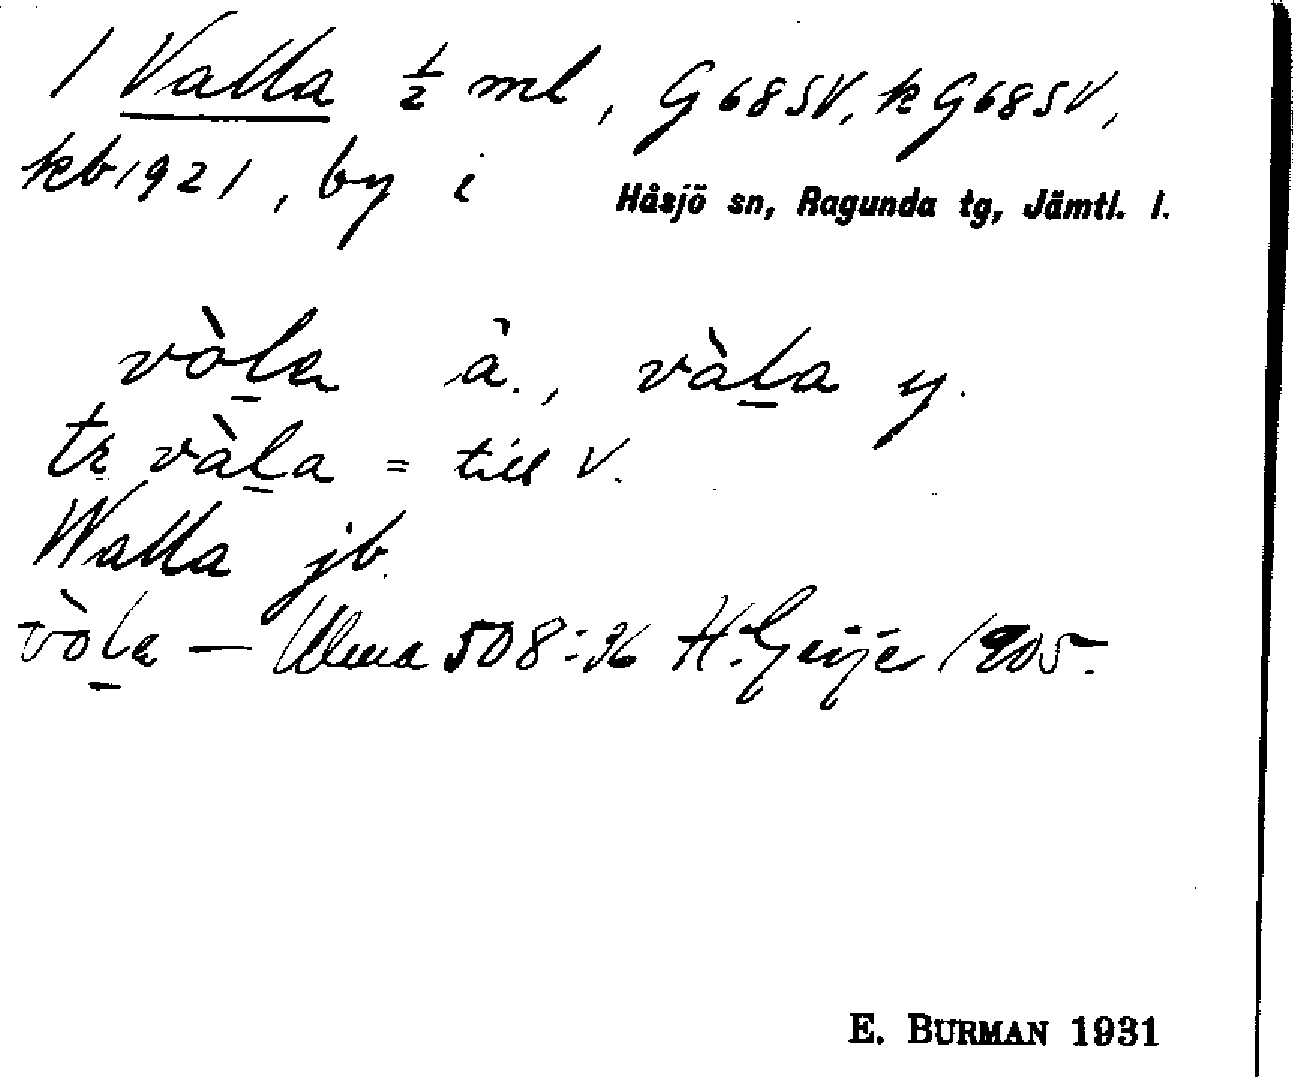 1 Valla ½ ml, G 68 SV, k G 68 SV,
kb 1921, by i Håsjö sn, Ragunda tg, Jämtl. l.
vòla ä., vàla y.
tε vàla = till V.
Walla jb.
vòla — Ulma 508:36 H. Geijer 1905.
E. BURMAN 1931